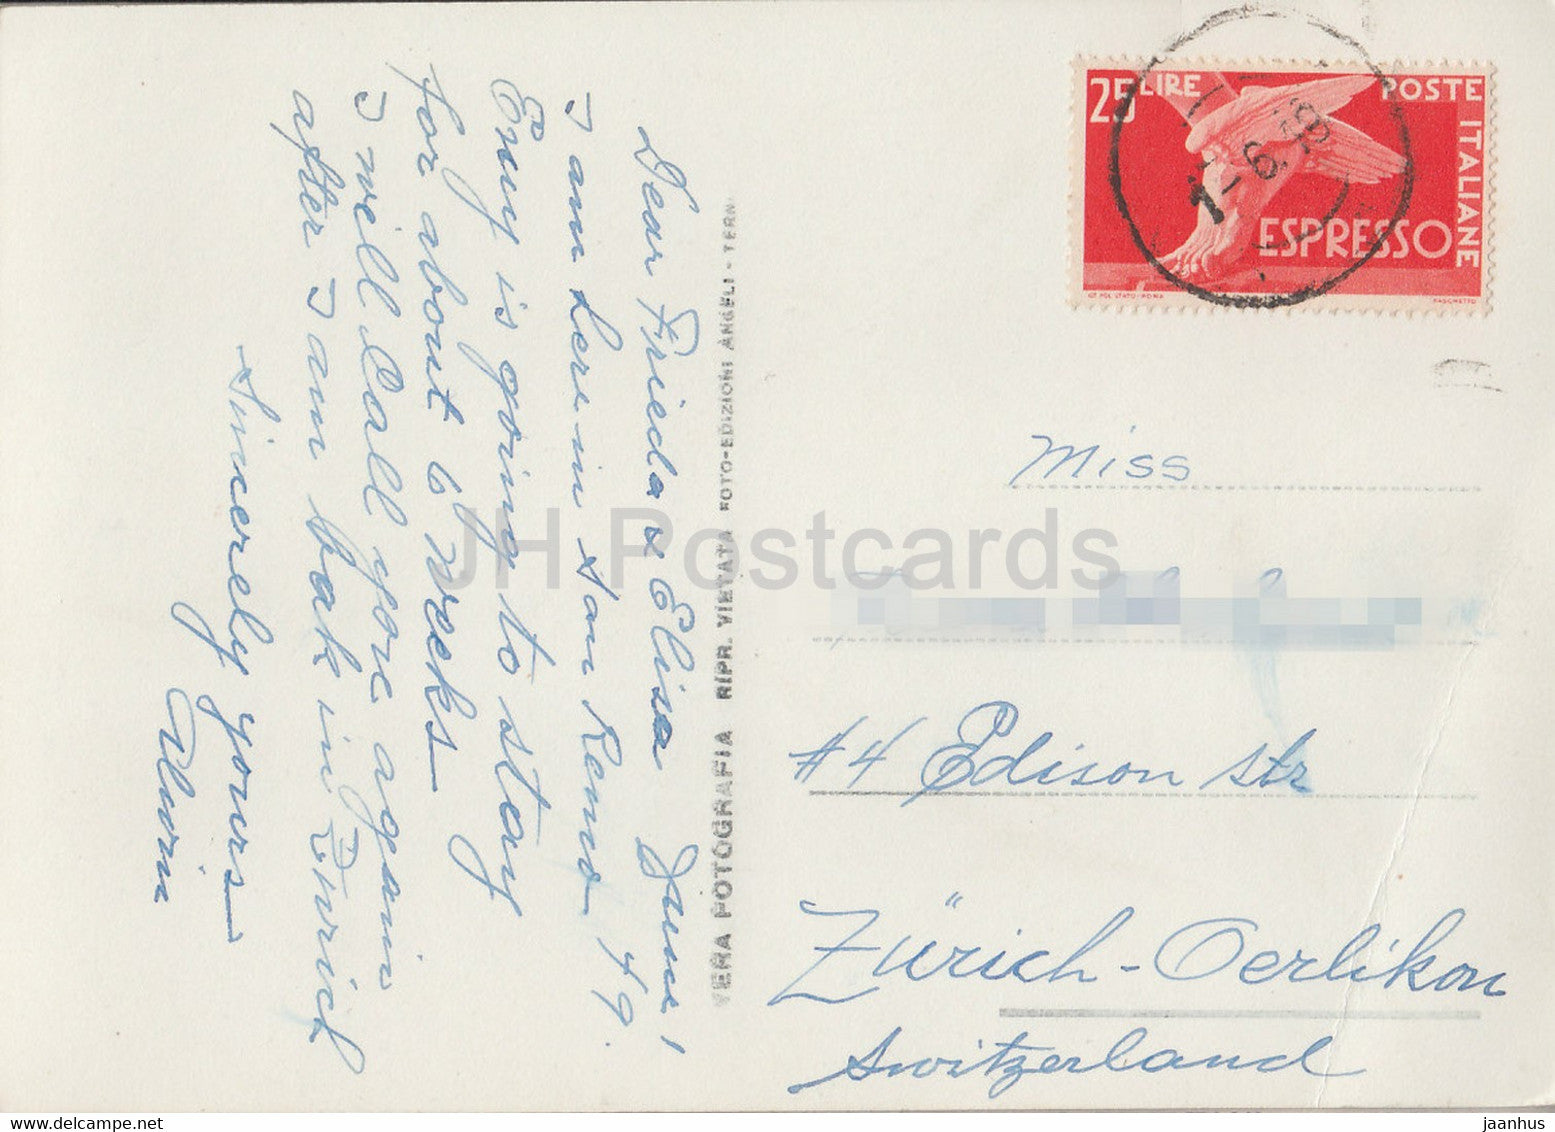 Dear Frieda & Elisa June 1
I am here in San Remo 49.
Emy is going to stay
for about 6 Weeks
I will Call you again
after I am bak in Zurich
Sincerely yours
Alwin
VERA FOTOGRAFIA RIPR. VIETATA FOTO-EDIZIONI ANGELI - TERNI
25 LIRE POSTE ITALIANE
ESPRESSO
IST. POL. STATO-ROMA PASCHETTO
1-6.
Miss
#4 Edison str
Zürich-Oerlikon
Switzerland
JH Postcards
delcampe.net
jaanhus